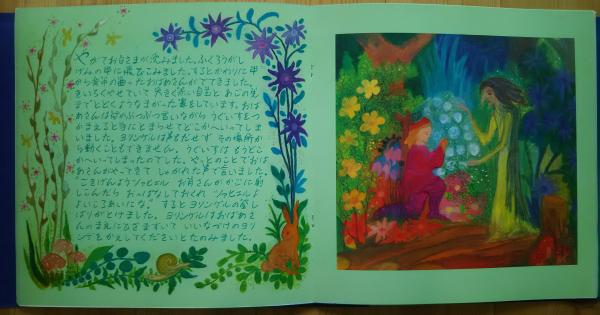 やがてお日さまが沈みました。ふくろうがし
げみの中に飛びこみました。するとかわりに中
から背中の曲ったおばあさんがでてきました。
きいろくやせていて 大きく赤い目玉と あごの先
までとどくようなまがった鼻をしています。おば
あさんは何かぶつぶつ言いながら うぐいすをつ
かまえると手にとまらせてどこかへいってしま
いました。ヨリンゲルは声もだせず その場所から
動くこともできません。うぐいすは もうどこ
かへいってしまったのでした。やっとのことでおば
あさんがやってきて しゃがれた声で言いました。
"ごきげんようツァヒエル お月さんが かごに射
しこんだら おっぱなしておくれ ツァヒエルよ
よいころあいにな。" するとヨリンゲルの金し
ばりがとけました。ヨリンゲルはおばあさ
んのまえにひざまずいて いいなづけのヨリ
ンデをかえしてくださいとたのみました。